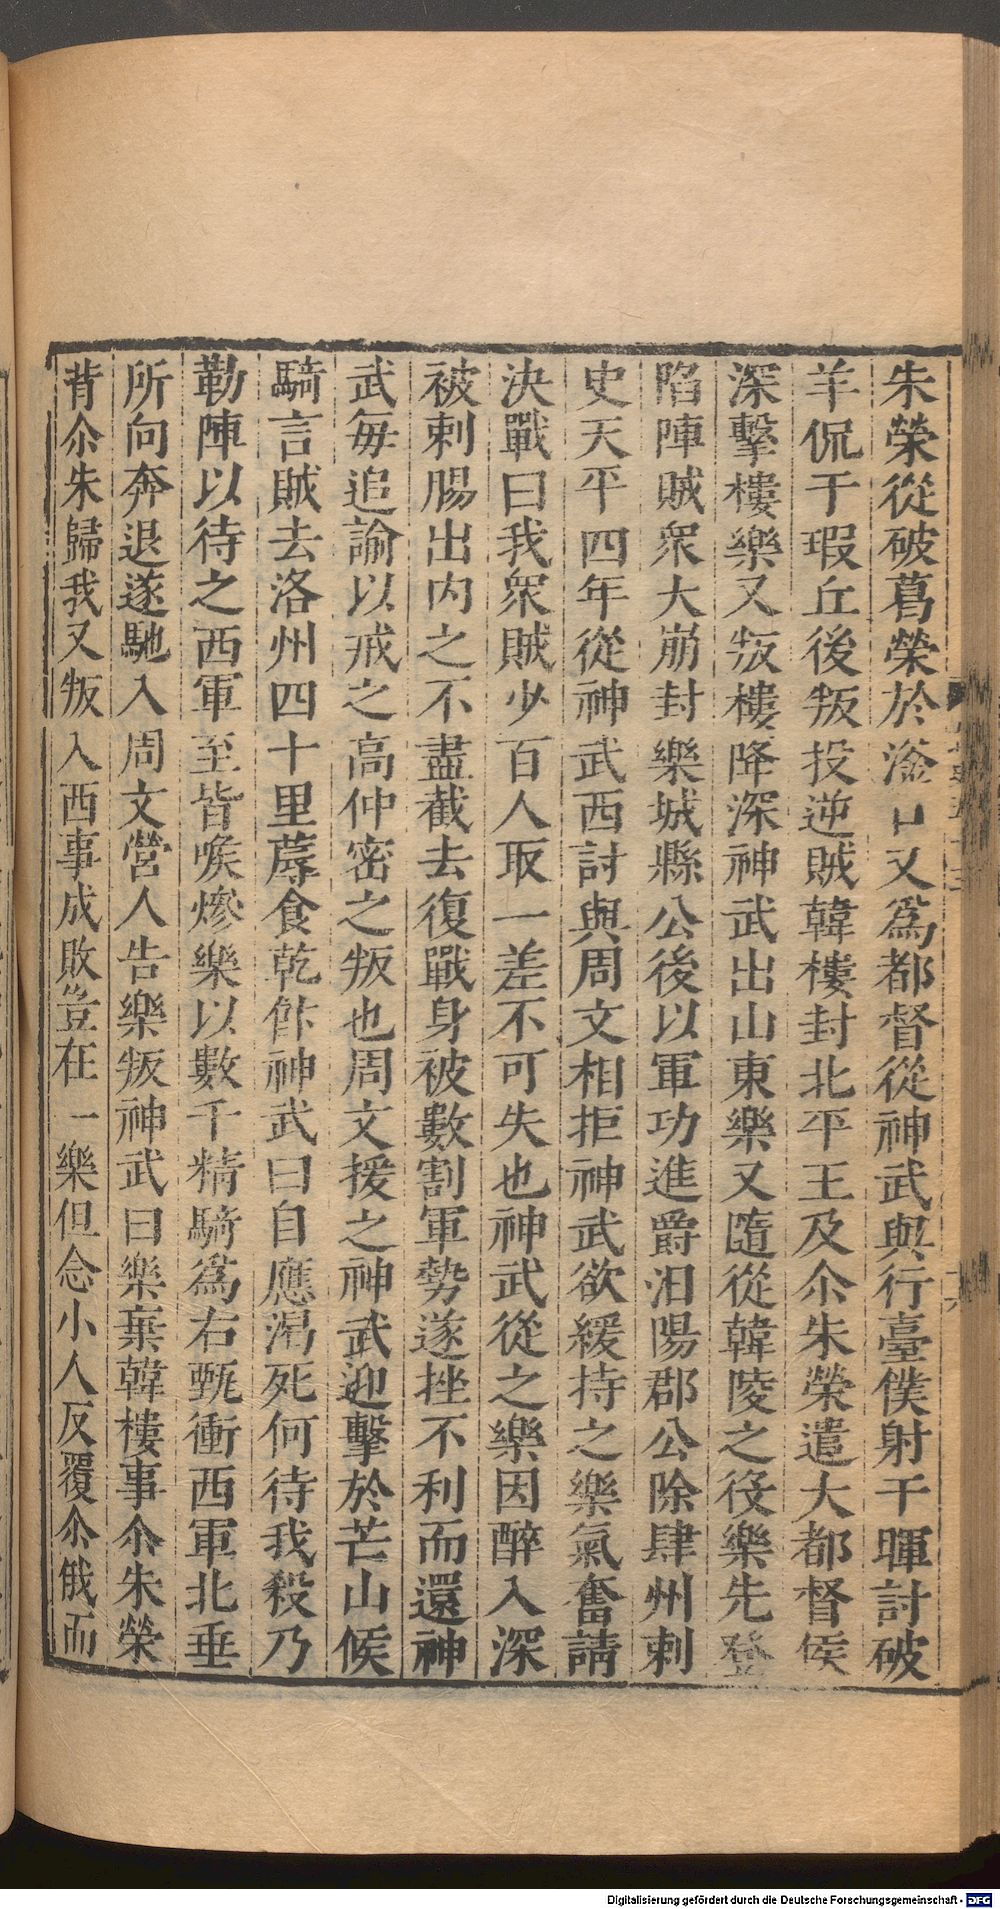 朱榮從破葛榮於滏口又爲都督從神武與行臺僕射于暉討破
羊侃于瑕丘後叛投逆賊韓樓封北平王及尒朱榮遣大都督侯
深擊樓樂又叛樓降深神武出山東樂又隨從韓陵之役樂先登
陷陣賊衆大崩封樂城縣公後以軍功進爵汨陽郡公除肆州刺
史天平四年從神武西討與周文相拒神武欲緩持之樂氣奮請
決戰曰我衆賊少百人取一差不可失也神武從之樂因醉入深
被刺腸出內之不盡截去復戰身被數割軍勢遂挫不利而還神
武每追諭以戒之高仲密之叛也周文援之神武迎擊於芒山候
騎言賊去洛州四十里蓐食乾飵神武曰自應渴死何待我殺乃
勒陣以待之西軍至皆喉燥樂以數千精騎爲右甄衝西軍北垂
所向奔退遂馳入周文營人告樂叛神武曰樂棄韓樓事尒朱榮
背尒朱歸我又叛入西事成敗豈在一樂但念小人反覆尒俄而
Digitalisierung gefördert durch die Deutsche Forschungsgemeinschaft - DFG